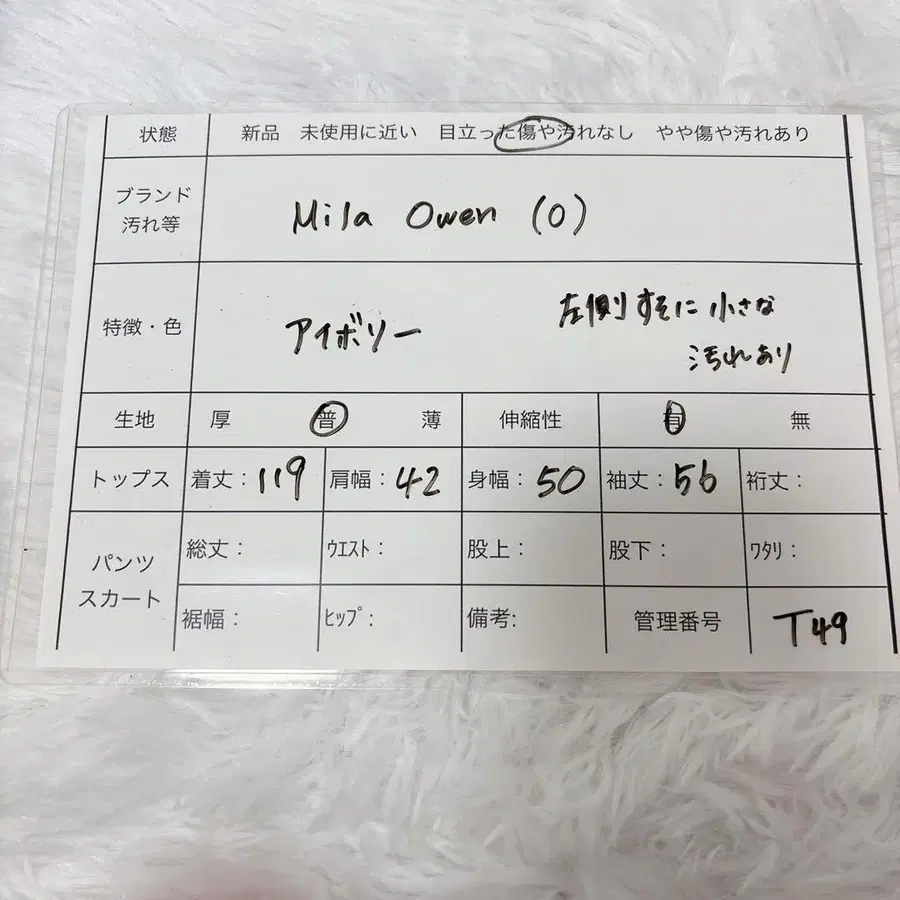 状態 新品 未使用に近い 目立った傷や汚れなし やや傷や汚れあり
ブランド
汚れ等
Mila Owen (0)
特徴・色
アイボリー
左側すそに小さな
汚れあり
生地 厚 普 薄 伸縮性 有 無
トップス 着丈：119 肩幅：42 身幅：50 袖丈：56 裄丈：
パンツ
スカート
総丈： ｳｴｽﾄ： 股上： 股下： ﾜﾀﾘ：
裾幅： ﾋｯﾌﾟ： 備考: 管理番号 T49